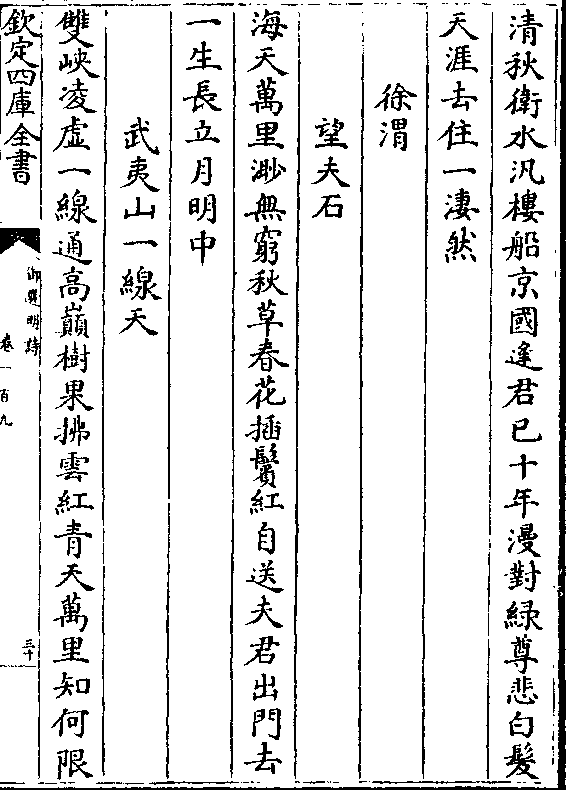 清秋衛水汎樓船京國逢君已十年漫對緑尊悲白髮
天涯去住一凄然
徐渭
望夫石
海天萬里渺無窮秋草春花插鬢紅自送夫君出門去
一生長立月明中
武夷山一線天
雙峽凌虚一線通高巔樹果拂雲紅青天萬里知何限
欽定四庫全書
御選明詩
卷一百九
三十